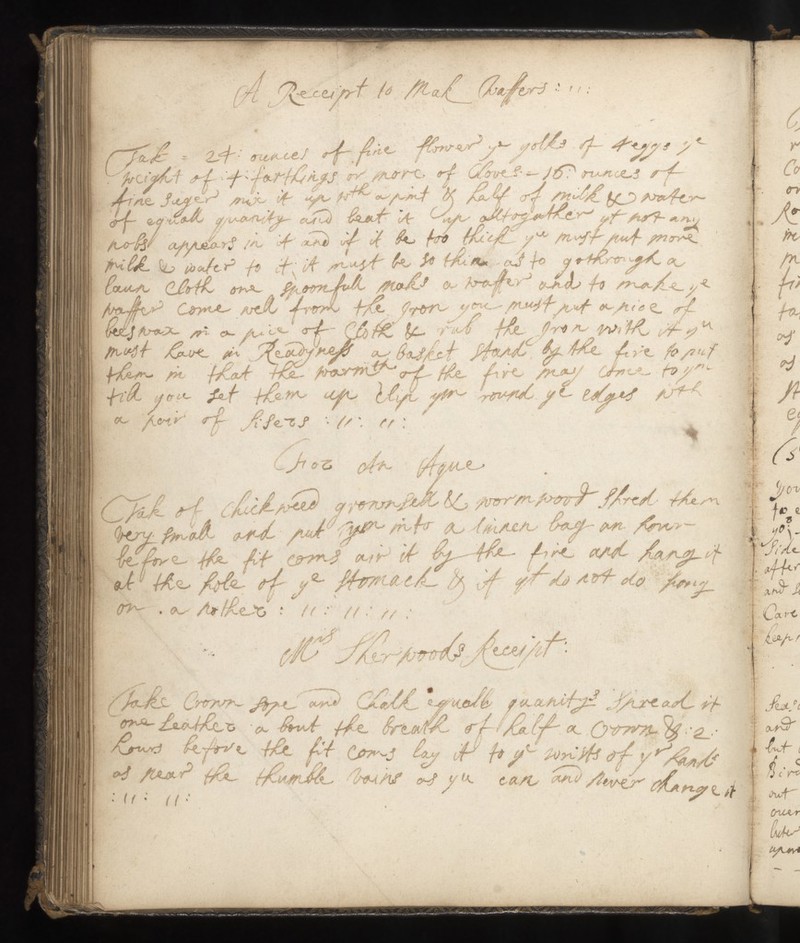 A Receipt to Mak Waffers : 11 :
Tak = 24: ounces of fine flower ye yolks of 4 eggs ye
weight of :4: farthings or more of Cloves = 16: ounces of
fine suger mix it up wth a pint & half of milk & water
of equall quanity and beat it up altogather yt not any
nobs appears in it and if it be too thick yu must put more
milk & water to it; it must be so thin as to gothrough a
laun Cloth one spoonfull maks a waffer and to make ye
waffer Come well from the Jron you must put a pice of
bees wax in a pice of Cloth & rub the Jron with it yu
must have in Readyness a basket stand by the fire to put
them in that the warmth of the fire may Come to ym
till you set them up Clip ym round ye edges wth
a pair of sisers : 11 : 11 :
For An Ague
Tak of Chickweed grownsell & wormwood shred them
very small and put ym into a linnen bag an hour
before the fit coms air it by the fire and hang it
at the hole of ye stomack & if yt do not do hang
on . a nother : 11 : 11 : 11 :
Mrs Sherwoods Receipt :
Take Crown sope and Chalk equall quanitys spread it
one Leather a bout the breath of half a Crown & :2:
hours before the fit Coms lay it to ye wrists of yr hands
as near the thumble vains as yu can and never change it
: 11 : 11 :